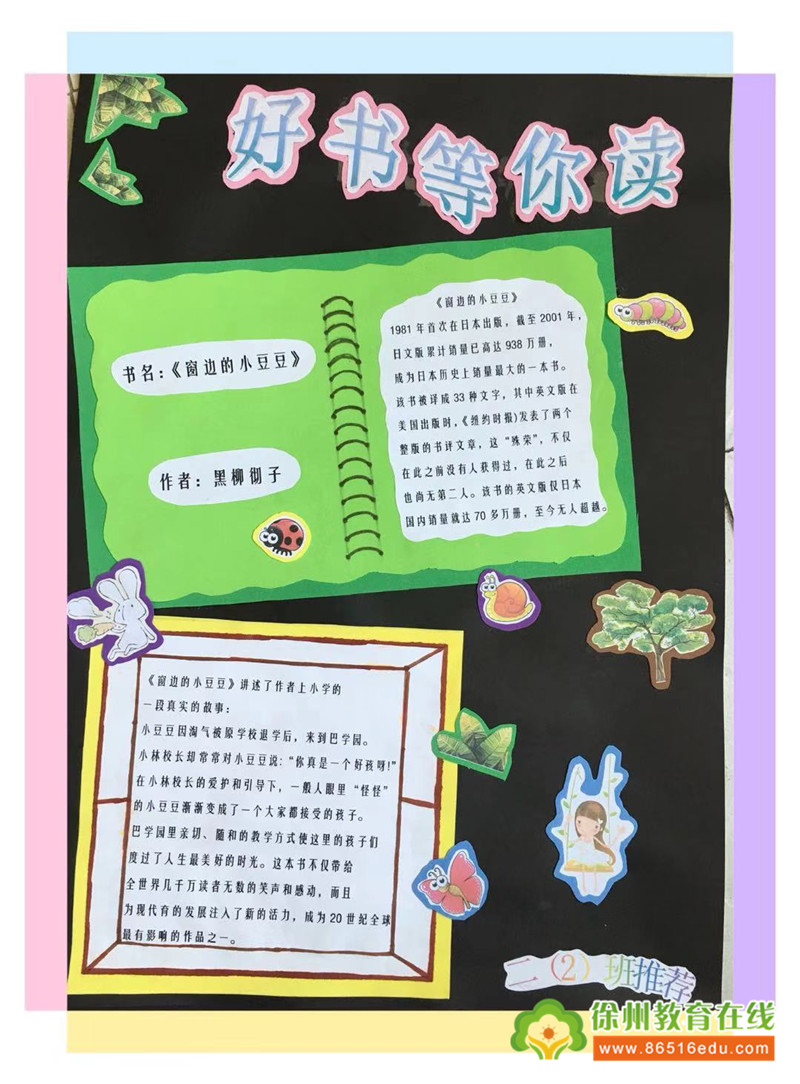 好书等你读
书名：《窗边的小豆豆》
作者：黑柳彻子
《窗边的小豆豆》
1981年首次在日本出版，截至2001年，
日文版累计销量已高达938万册，
成为日本历史上销量最大的一本书。
该书被译成33种文字，其中英文版在
美国出版时，《纽约时报》发表了两个
整版的书评文章，这“殊荣”，不仅
在此之前没有人获得过，在此之后
也尚无第二人。该书的英文版仅日本
国内销量就达70多万册，至今无人超越。
《窗边的小豆豆》讲述了作者上小学的
一段真实的故事：
小豆豆因淘气被原学校退学后，来到巴学园。
小林校长却常常对小豆豆说：“你真是一个好孩呀！”
在小林校长的爱护和引导下，一般人眼里“怪怪”
的小豆豆渐渐变成了一个大家都接受的孩子。
巴学园里亲切、随和的教学方式使这里的孩子们
度过了人生最美好的时光。这本书不仅带给
全世界几千万读者无数的笑声和感动，而且
为现代有的发展注入了新的活力，成为20世纪全球
最有影响的作品之一。
二（2）班推荐
徐州教育在线
www.86516edu.com